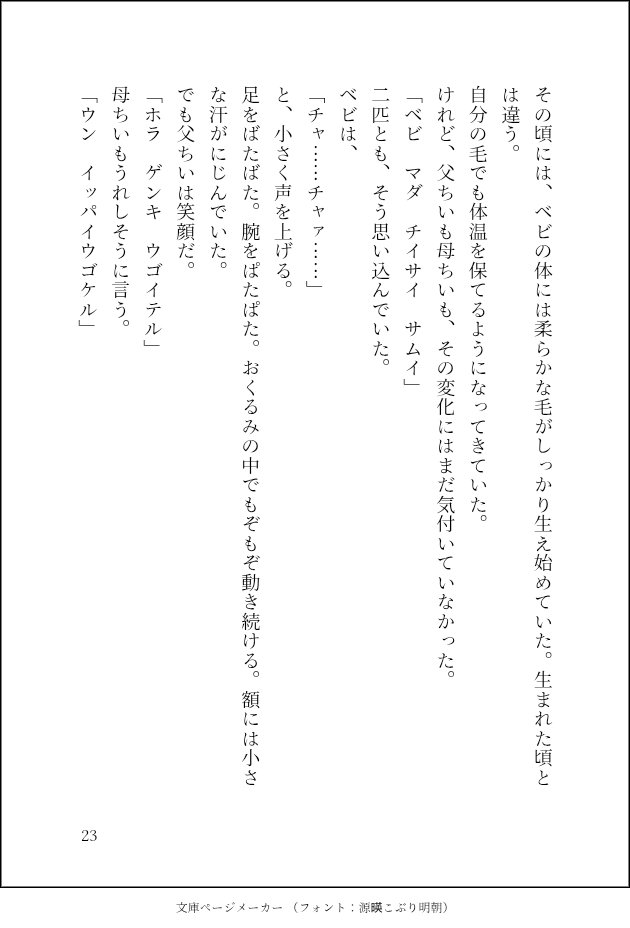 その頃には、ベビの体には柔らかな毛がしっかり生え始めていた。生まれた頃と
は違う。
自分の毛でも体温を保てるようになってきていた。
けれど、父ちいも母ちいも、その変化にはまだ気付いていなかった。
「ベビ　マダ　チイサイ　サムイ」
二匹とも、そう思い込んでいた。
ベビは、
「チャ……チャァ……」
と、小さく声を上げる。
足をばたばた。腕をぱたぱた。おくるみの中でもぞもぞ動き続ける。額には小さ
な汗がにじんでいた。
でも父ちいは笑顔だ。
「ホラ　ゲンキ　ウゴイテル」
母ちいもうれしそうに言う。
「ウン　イッパイウゴケル」
23
文庫ページメーカー（フォント：源暎こぶり明朝）